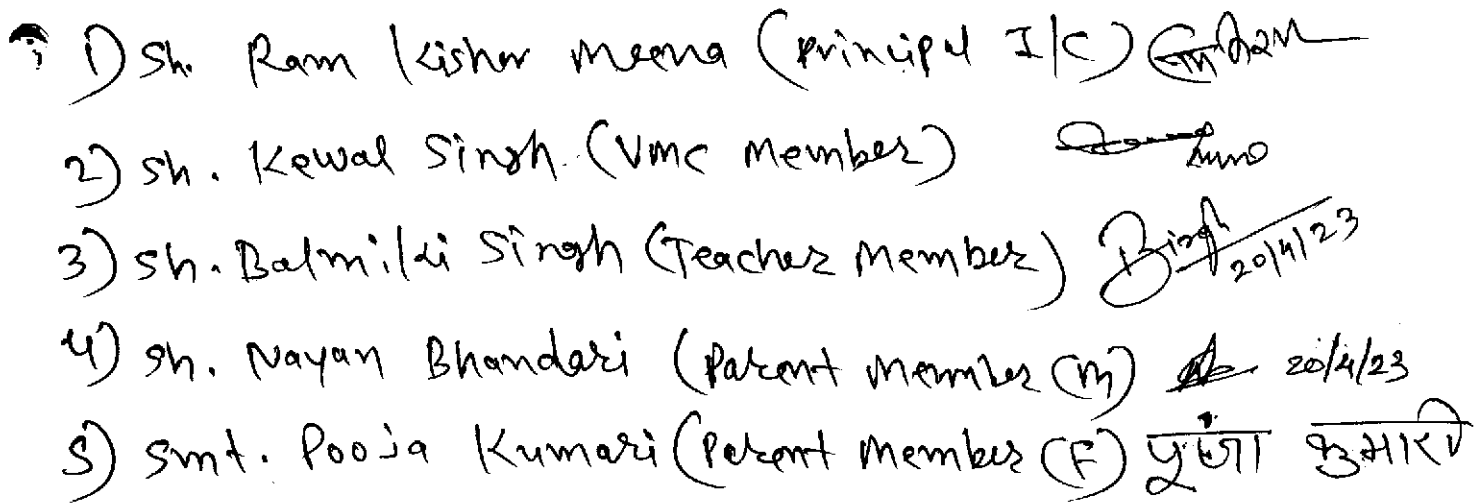 1) Sh. Ram Kishor Meena (Principal I/C)
2) Sh. Kewal Singh. (VMC Member)
3) Sh. Balmiki Singh (Teacher Member) BSingh 20/4/23
4) Sh. Nayan Bhandari (Parent Member (M) 20/4/23
5) Smt. Pooja Kumari (Parent Member (F) पूजा कुमारी